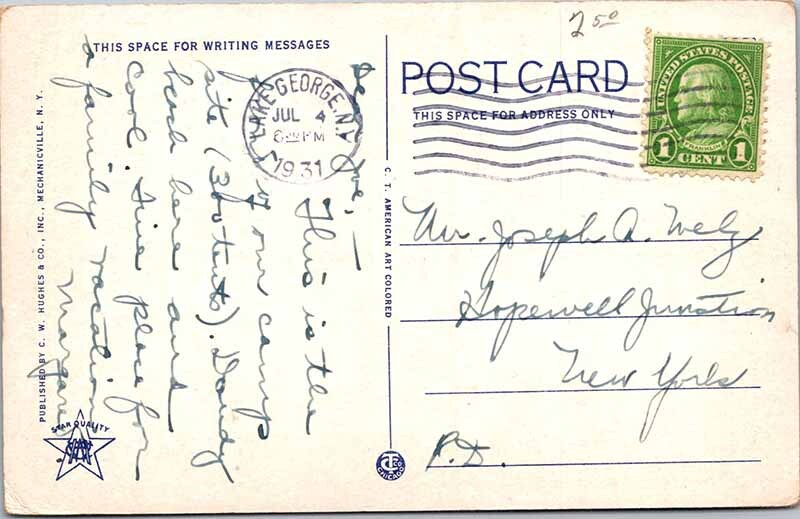 2 50
THIS SPACE FOR WRITING MESSAGES
Dear Joe, —
This is the
of our camp
site (360 tents). Dandy
beach here and
cool. Fine place for
a family vacation
Margaret.
LAKE GEORGE, N.Y.
JUL 4
PM
1931
POST CARD
THIS SPACE FOR ADDRESS ONLY
UNITED STATES POSTAGE
FRANKLIN
1 CENT 1
Mr. Joseph A. Welz
Hopewell Junction
New York
R.D.
C. T. AMERICAN ART COLORED
CHICAGO
PUBLISHED BY C. W. HUGHES & CO., INC., MECHANICVILLE, N. Y.
STAR QUALITY